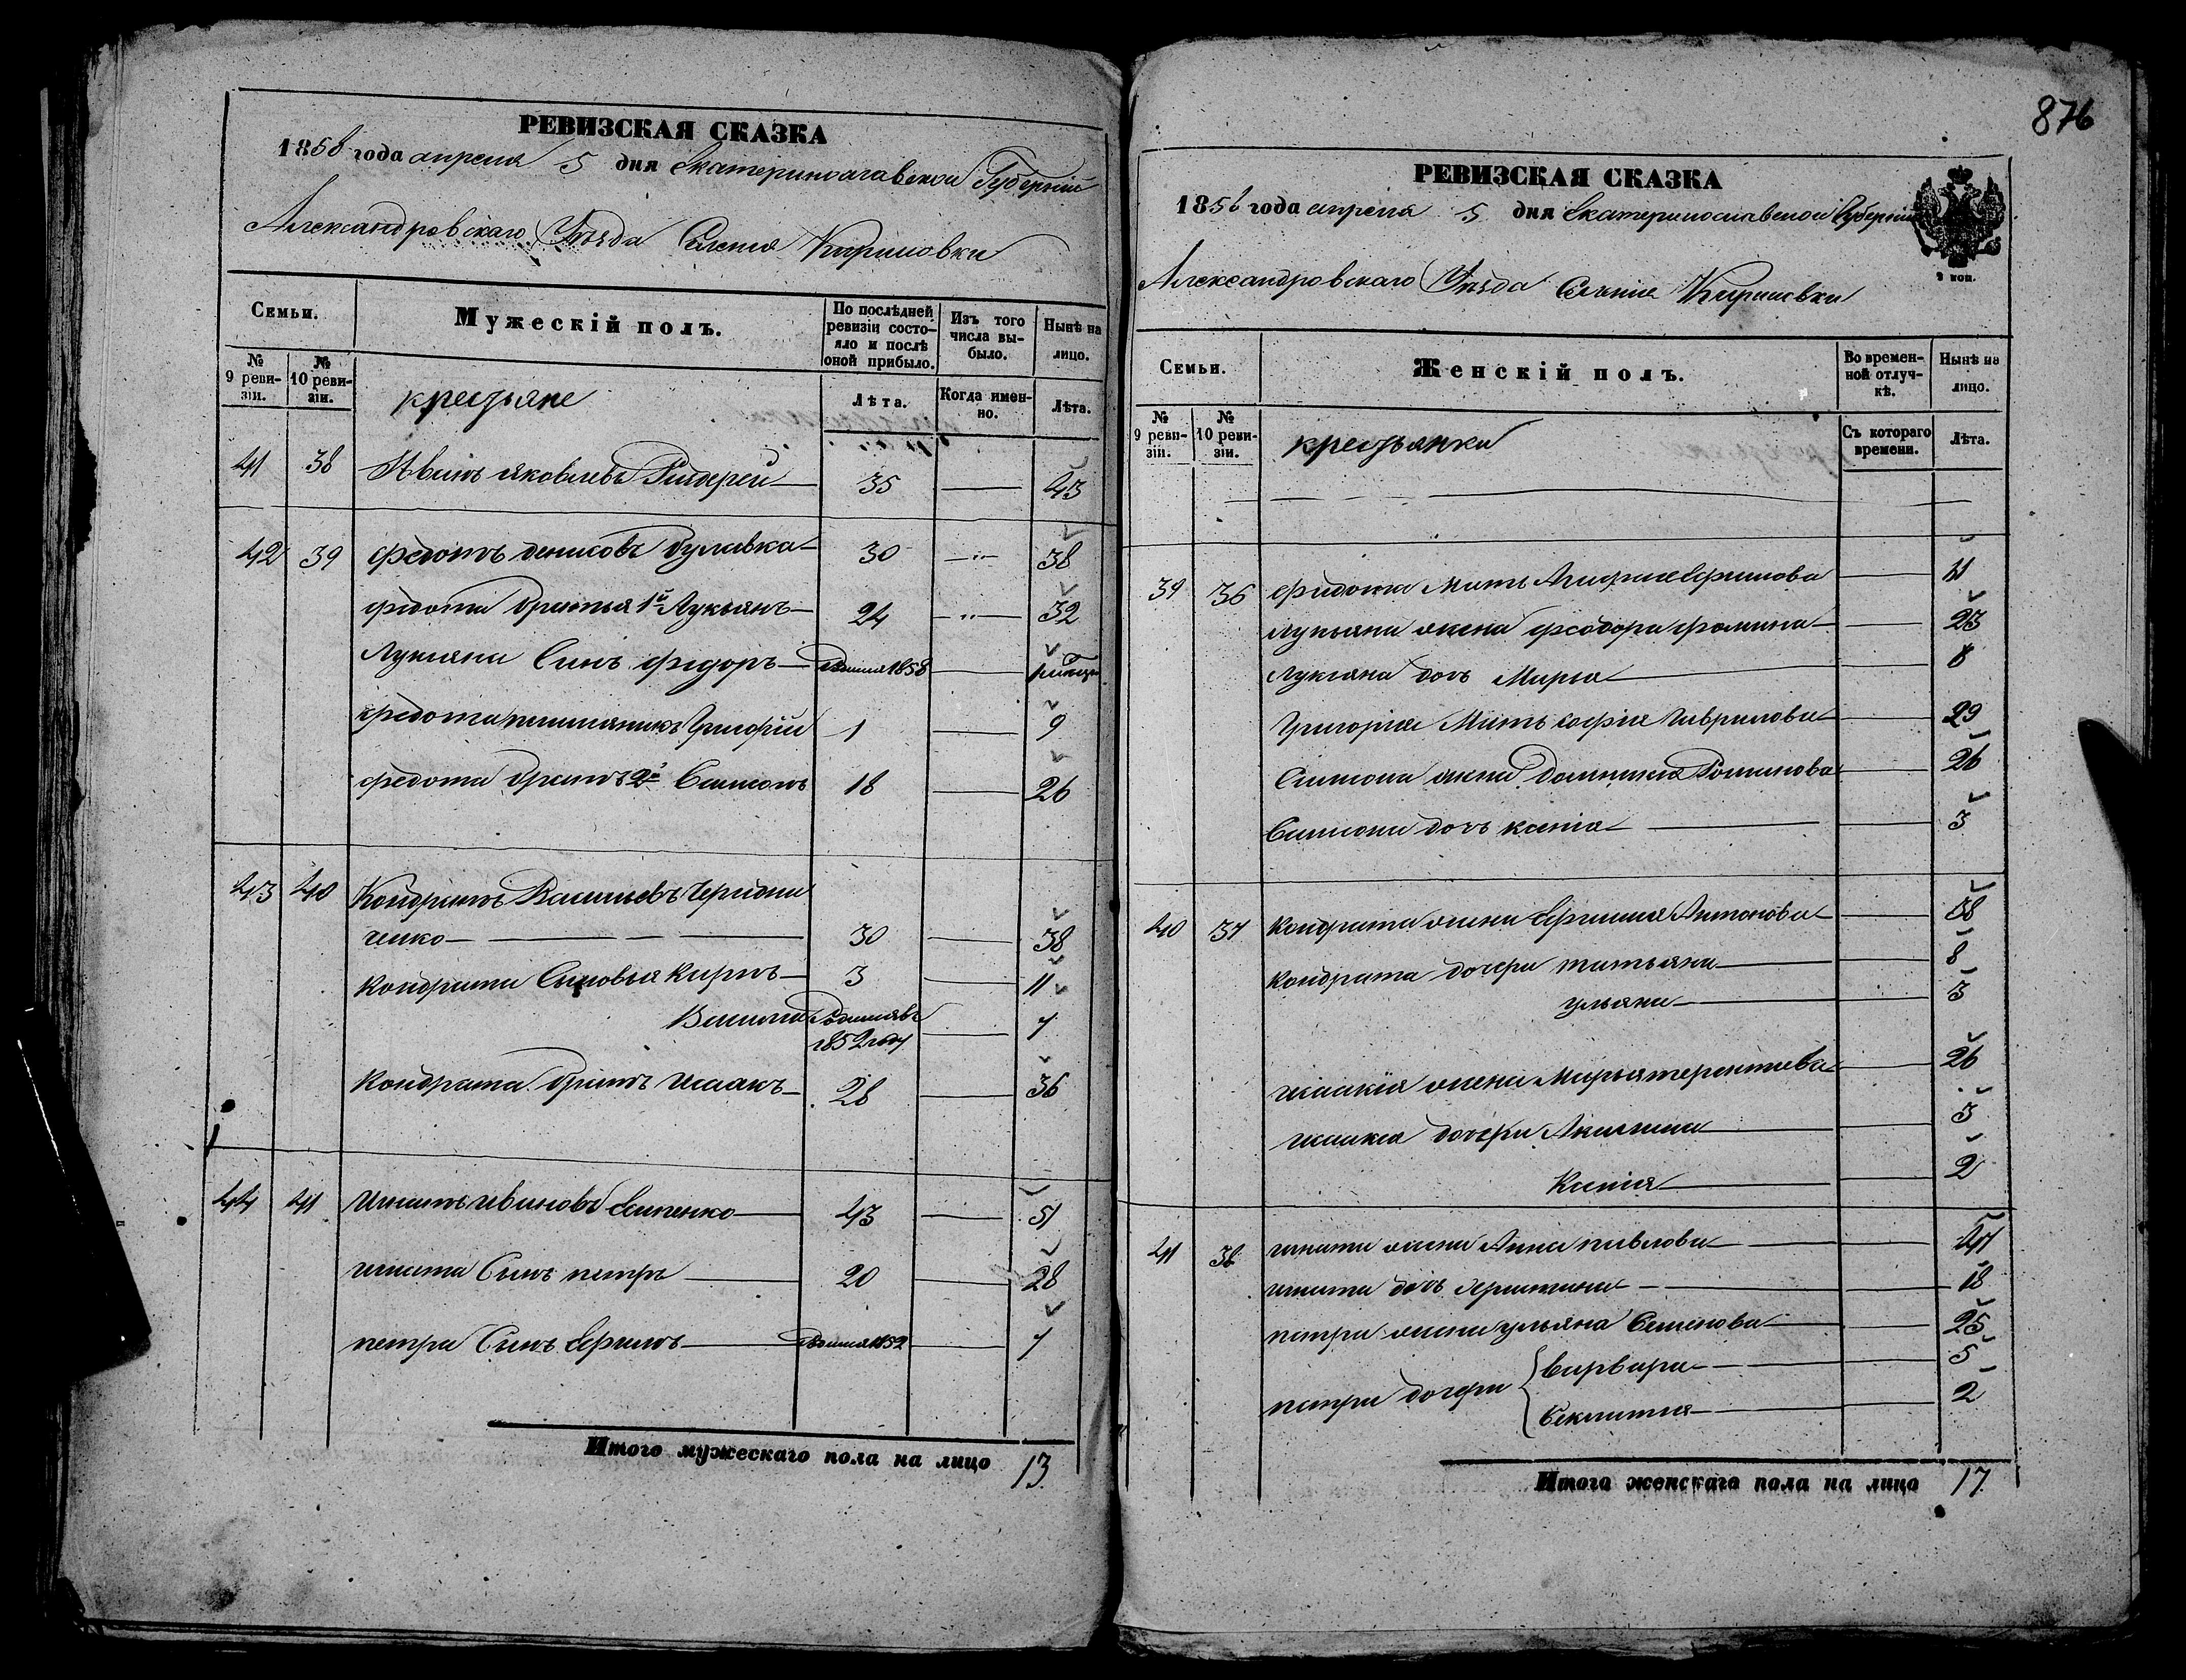 РЕВИЗСКАЯ СКАЗКА
1858 года апреля 5 дня Екатеринославской Губерніи
Александровскаго Уѣзда Селенія Кириловки
Семьи.
Мужескій полъ.
По послѣдней ревизіи состояло и послѣ оной прибыло.
Изъ того числа выбыло.
Нынѣ на лицо.
№ 9 ревизіи.
№ 10 ревизіи.
крестьяне
Лѣта.
Когда именно.
Лѣта.
41 38 Яковлевъ 35 — 43
42 39 Федотъ Денисовъ Булавка 30 — " — 38
Федота братья 1й Лукьянъ 24 — " — 32
Лукьяна Сынъ Федоръ 1858 —
Федота племянникъ Григорій 1 — 9
Федота братъ 2й Самсонъ 18 — 26
43 40 Кондратъ Васильевъ
ченко — 30 — 38
Кондрата Сыновья Кирилъ 3 — 11
Василій Родился въ 1852 году — 7
Кондрата братъ Исаакъ 28 — 36
44 41 Игнатъ Ивановъ Есипенко 43 — 51
Игната Сынъ Петръ — 20 — 28
Петра Сынъ Ефимъ — родился 1852 — 7
Итого мужескаго пола на лицо 13
876
РЕВИЗСКАЯ СКАЗКА
1858 года апреля 5 дня Екатеринославской Губерніи
Александровскаго Уѣзда Селенія Кириловки
2 коп.
Семьи.
Женскій полъ.
Во временной отлучкѣ.
Нынѣ на лицо.
№ 9 ревизіи.
№ 10 ревизіи.
крестьянки
Съ котораго времени.
Лѣта.
39 36 Федота Мать Ефимова —
Лукьяна жена Феодора Фомина — 23
Лукьяна дочь Марья — 8
Григорія Мать Софія Гаврилова — 29
Самсона жена Домникия Романова — 26
Самсона дочь Ксенія — 3
40 37 Кондрата жена Антонова — 38
Кондрата дочери Татьяна — 8
Ульяна — 3
Исаакія жена Марья Терентьева — 26
Исаакія дочери Акилина — 3
Ксенія — 2
41 38 Игната жена Анна Павлова — 47
Игната дочь Христина — 18
Петра жена Ульяна Семенова — 25
Петра дочери Варвара — 5
— 2
Итого женскаго пола на лицо 17